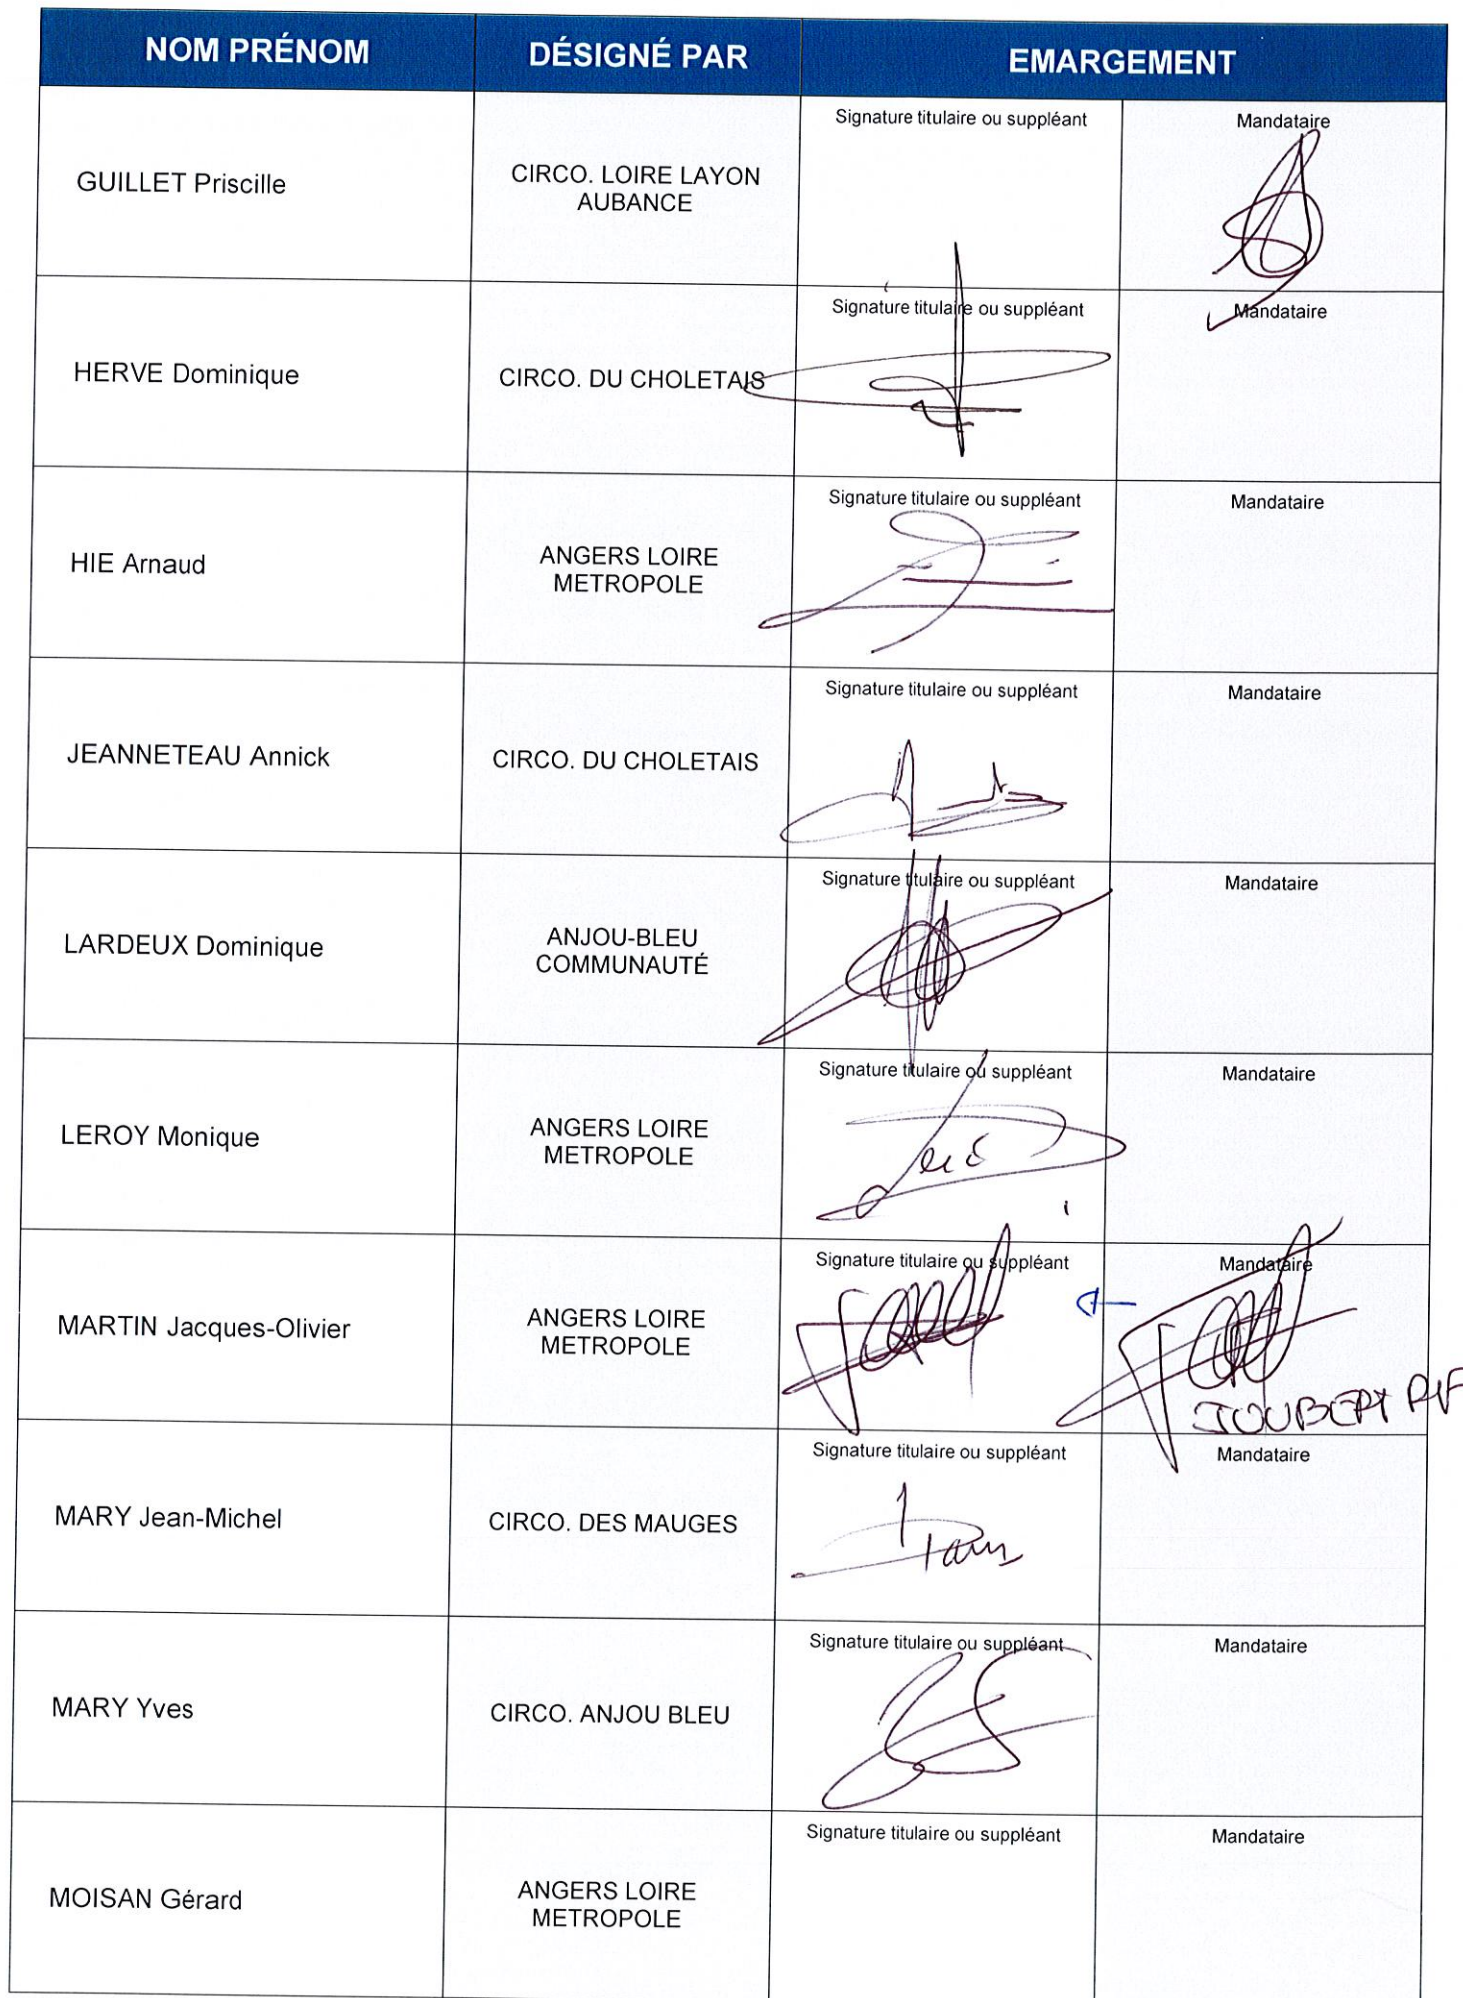 NOM PRÉNOM DÉSIGNÉ PAR EMARGEMENT
Signature titulaire ou suppléant Mandataire
GUILLET Priscille CIRCO. LOIRE LAYON
AUBANCE
Signature titulaire ou suppléant Mandataire
HERVE Dominique CIRCO. DU CHOLETAIS
Signature titulaire ou suppléant Mandataire
HIE Arnaud ANGERS LOIRE
METROPOLE
Signature titulaire ou suppléant Mandataire
JEANNETEAU Annick CIRCO. DU CHOLETAIS
Signature titulaire ou suppléant Mandataire
LARDEUX Dominique ANJOU-BLEU
COMMUNAUTÉ
Signature titulaire ou suppléant Mandataire
LEROY Monique ANGERS LOIRE
METROPOLE
Signature titulaire ou suppléant Mandataire
MARTIN Jacques-Olivier ANGERS LOIRE
METROPOLE
JOUBERT
Signature titulaire ou suppléant Mandataire
MARY Jean-Michel CIRCO. DES MAUGES
Signature titulaire ou suppléant Mandataire
MARY Yves CIRCO. ANJOU BLEU
Signature titulaire ou suppléant Mandataire
MOISAN Gérard ANGERS LOIRE
METROPOLE